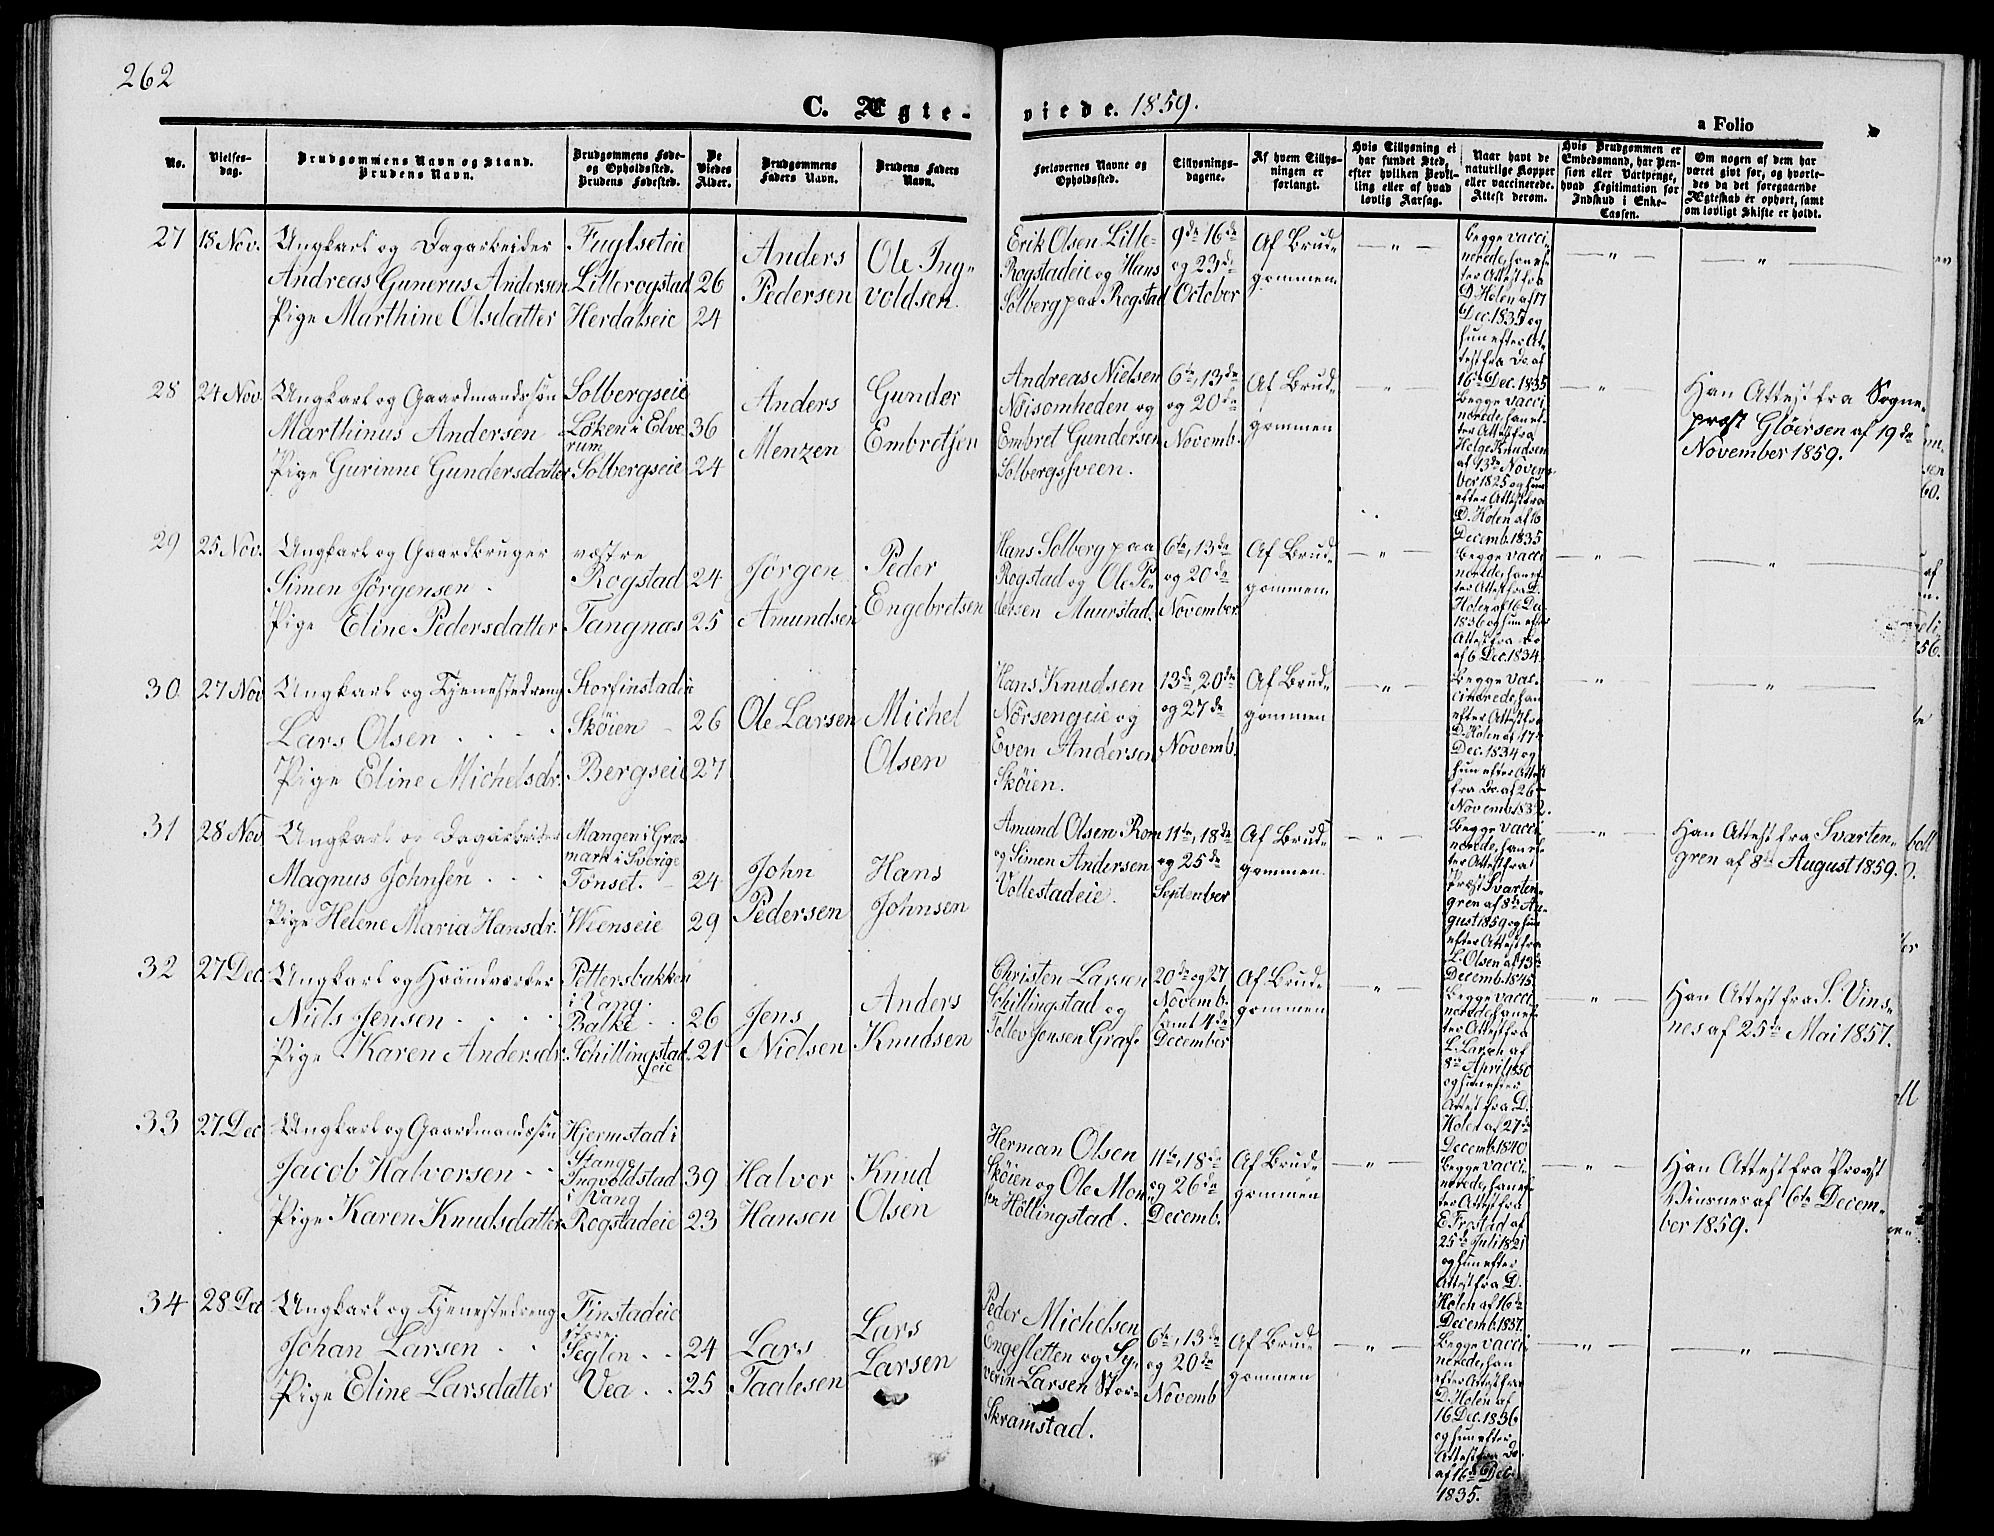 262
C. Ægte-
viede. 1859.
a Folio
No.
Vielses-
dag.
Brudgommens Navn og Stand.
Brudens Navn.
Brudgommens Føde-
og Opholdssted.
Brudens Fødested.
De
Viedes
Alder.
Brudgommens
Faders Navn.
Brudens Faders
Navn.
Forlovernes Navne og
Opholdssted.
Tillysnings-
dagene.
Af hvem Tillys-
ningen er
forlangt.
Hvis Tillysning ei
har fundet Sted,
efter hvilken Bevil-
ling eller af hvad
lovlig Aarsag.
Naar havt de
naturlige Kopper
eller vaccinerede.
Attest derom.
Hvis Brudgommen er
Embedsmand, har Pen-
sion eller Vartpenge,
hvad Legitimation for
Indskud i Enke-
Cassen.
Om nogen af dem har
været givt før, og hvorle-
des da det foregaaende
Ægteskab er ophørt, samt
om lovligt Skifte er holdt.
27
18 Nov.
Ungkarl og Dagarbeider
Andreas Gunerus Andersen
Pige Marthine Olsdatter
Fuglseteie
Lillerogstad
Herdalseie
26
24
Anders
Pedersen
Ole Ing-
voldsen.
Erik Olsen Lille-
Rogstadeie og Hans
Solberg paa Rogstad
9de 16de
og 23de
October
Af Brud-
gommen
Begge vacci-
nerede, han ef-
ter Attest fra
D. Holen af 17
Dec. 1835 og
hun efter At-
test fra Do af
16de Dec. 1835
28
24 Nov.
Ungkarl og Gaardmandssøn
Marthinus Andersen
Pige Gurinne Gundersdatter
Solbergseie
Løken i Elve
rum
Solbergseie
36
24
Anders
Menzen
Gunder
Embretsen
Andreas Nielsen
Nöisomheden og
Embret Gundersen
Solbergssveen.
6te, 13de
og 20de
Novemb.
Af Brud-
gommen
Begge vacci
nerede, han ef-
ter Attest fra
Helge Knudsen
af 13de Novem-
ber 1825 og hun
efter Attest fra
D. Holen af 16
Decemb. 1835
Han Attest fra Sogne-
præst Glöersen af 19de
November 1859.
29
25 Nov.
Ungkarl og Gaardbruger
Simen Jörgensen
Pige Eline Pedersdatter
væstre
Rogstad
Tangnæs
24
25
Jörgen
Amundsen
Peder
Engebretsen
Hans Solberg paa
Rogstad og Ole Pe-
dersen Muurstad.
6te, 13de
og 20de
November
Af Brud-
gommen
Begge vacci
nerede, han ef-
ter Attest fra D.
Holen af 16 De-
1836 og hun efter
Attest fra Do
af 6 Dec. 1834.
30
27 Nov
Ungkarl og Tjenestedreng
Lars Olsen
Pige Eline Michelsdr.
Storfinstadeie
Sköien
Bergseie
26
27
Ole Larsen
Michel
Olsen
Hans Knudsen
Nörsengeie og
Even Andersen
Sköien.
13de, 20de
og 27de
Novemb.
Af Brud-
gommen
Begge vac-
cinerede, han
efter Attest fra
D. Holen af 17de
Dec. 1834 og
hun efter Attest
fra Do. af 26
Novemb. 1832.
31
28 Nov
Ungkarl og Dagarbeider
Magnus Johnsen
Pige Helene Maria Hansdr.
Mangen i Græs
mark i Sverige
Tönset.
Weenseie
24
29
John
Pedersen
Hans
Johnsen
Amund Olsen Rom
og Simen Andersen
Vollestadeie.
11te, 18de
og 25de
September
Af Brud-
gommen
Begge vacci
nerede, han ef-
ter Attest fra
Præst Svarten-
gren af 8de Au-
gust 1859 og hun
efter Attest fra
L. Olsen af 13de
Decemb. 1845.
Han Attest fra Svarten-
gren af 8de August 1859.
32
27 Dec
Ungkarl og Haandværker
Niels Jensen
Pige Karen Andersdr.
Pettersbakken
i Vang.
Balke
Schillingstad
eie
26
21
Jens
Nielsen
Anders
Knudsen
Christen Larsen
Schillingstad og
Tollev Jensen Graf-
20de og 27
Novemb.
samt 4de
December
Af Brud-
gommen
Begge vacci-
nerede, han ef-
ter Attest fra
L. Larsen af
8de April 1850
og hun efter
Attest fra D.
Holen af 27de
Decemb. 1840
Han Attest fra S. Vins-
nes af 25de Mai 1857.
33
27 Dec
Ungkarl og Gaardmandssøn
Jacob Halvorsen
Pige Karen Knudsdatter
Hjermstad i
Stange
Ingvoldstad
i Vang
Rogstadeie
39
23
Halvor
Hansen
Knud
Olsen
Herman Olsen
Sköien og Ole Mon-
sen Höllingstad.
11te, 18de
og 26de
Decemb.
Af Brud-
gommen
Begge vacci-
nerede, han ef-
ter Attest fra
E. Frostad af
25de Juli 1821
og hun efter
Attest fra D.
Holen af 16de
Decemb. 1837.
Han Attest fra Provst
Vinsnes af 6te Decem-
ber 1859.
34
28 Dec
Ungkarl og Tjenestedreng
Johan Larsen
Pige Eline Larsdatter
Finstadeie
store
Seglen
Vea
24
25
Lars
Taalesen
Lars
Larsen
Peder Michelsen
Engesletten og Sy-
verin Larsen Stor-
Skramstad.
6te, 13de
og 20de
Novemb
Af Brud-
gommen
Begge vacci
nerede, han
efter Attest fra
D. Holen af
16 Dec. 1836
og hun efter
Attest fra Do.
af 16de Dec.
1835.